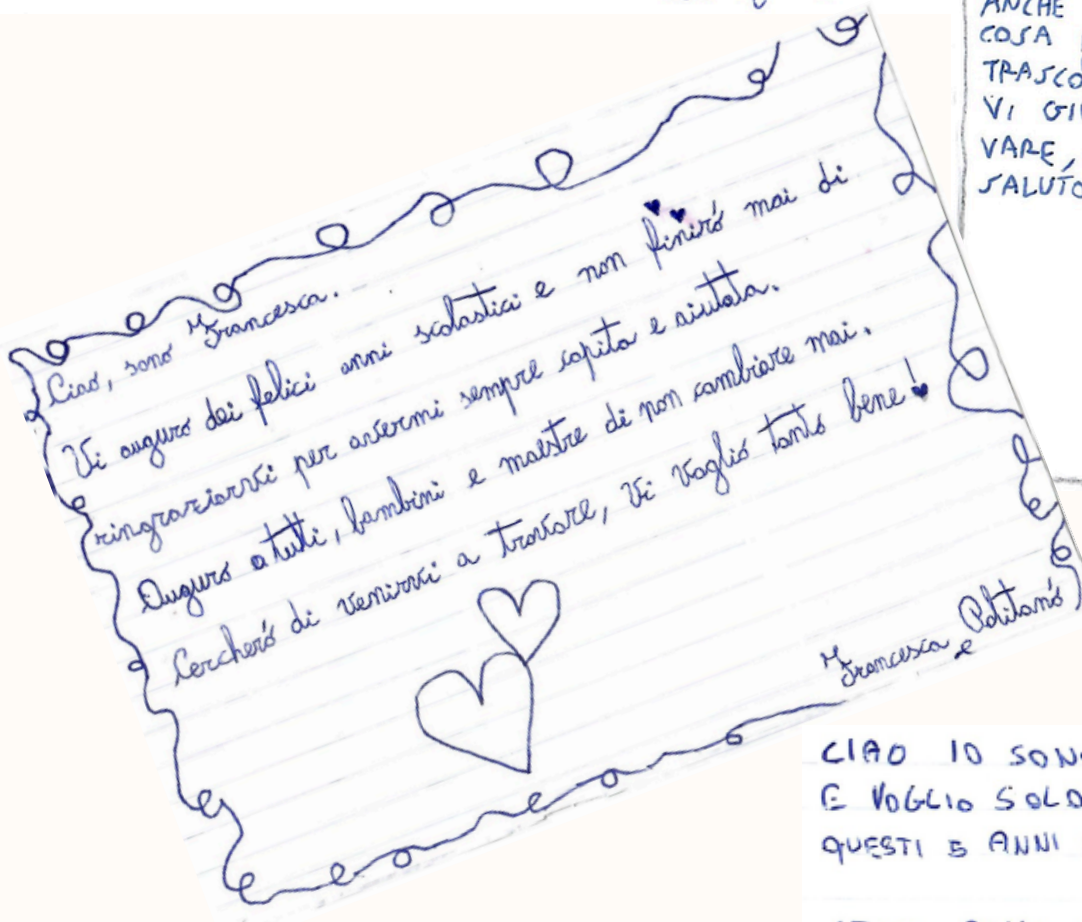 Ciao, sono Francesca.
Vi auguro dei felici anni scolastici e non finiró mai di
ringraziarvi per avermi sempre capita e aiutata.
Auguro a tutti, bambini e maestre di non cambiare mai.
Cercheró di venirvi a trovare, Vi voglio tanto bene!
Francesca Politanó
ANCHE
COSA
VARE,
CIAO IO
E VOGLIO
QUESTI 5 ANNI